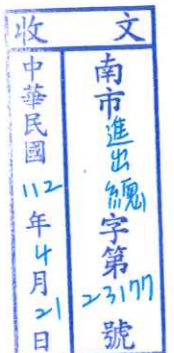 收文
南市進出總字第23177號
中華民國112年4月21日